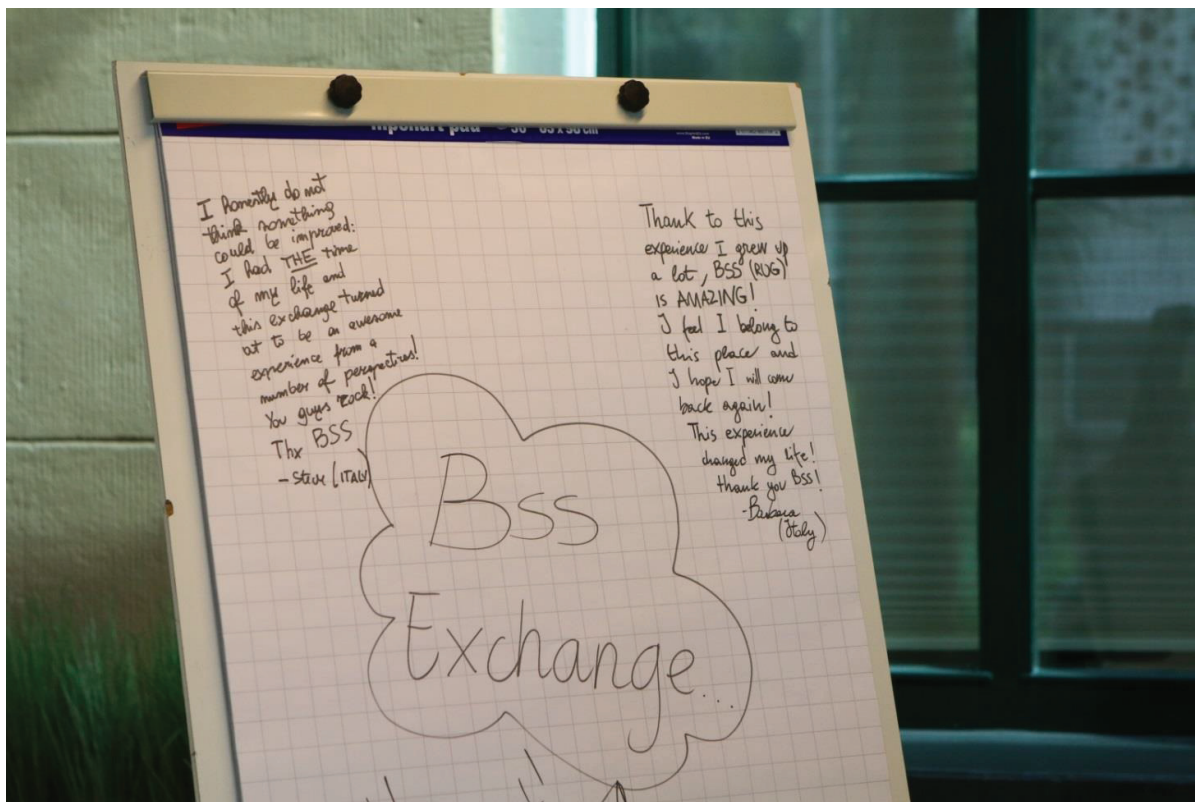 I honestly do not
think something
could be improved:
I had THE time
of my life and
this exchange turned
out to be an awesome
experience from a
number of perspectives!
You guys rock!
Thx BSS
- Steve (ITALY)
Thank to this
experience I grew up
a lot, BSS (RUG)
is AMAZING!
I feel I belong to
this place and
I hope I will come
back again!
This experience
changed my life!
thank you BSS!
-Barbara
(Italy)
Bss
Exchange...